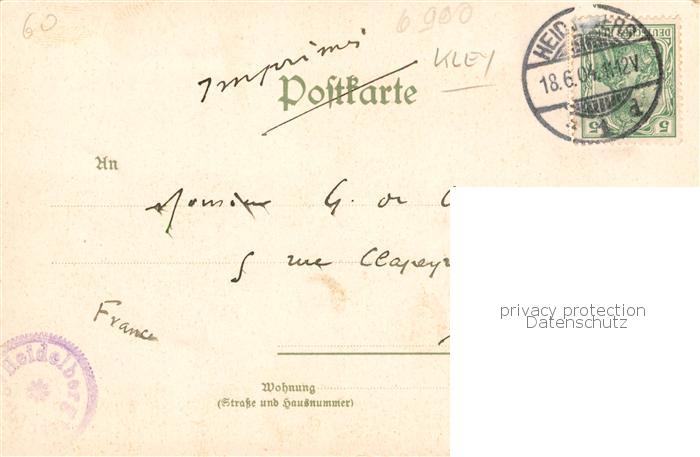 60
6900
KLEY
Imprimés
Postkarte
HEIDELBERG
18.6.04.11-12V.
1 a.
DEUTSCHES REICH
5 5
An
Monsieur G. de
5 rue Clapey
France
Heidelberg
Wohnung
(Straße und Hausnummer)
privacy protection
Datenschutz